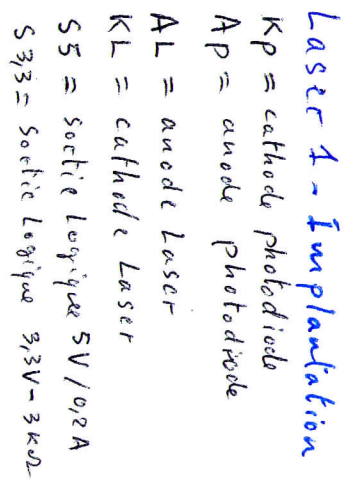 Laser 1 - Implantation
Kp = cathode photodiode
Ap = anode photodiode
AL = anode Laser
KL = cathode Laser
S5 = sortie Logique 5V/0,2A
S3,3 = Sortie Logique 3,3V - 3KΩ